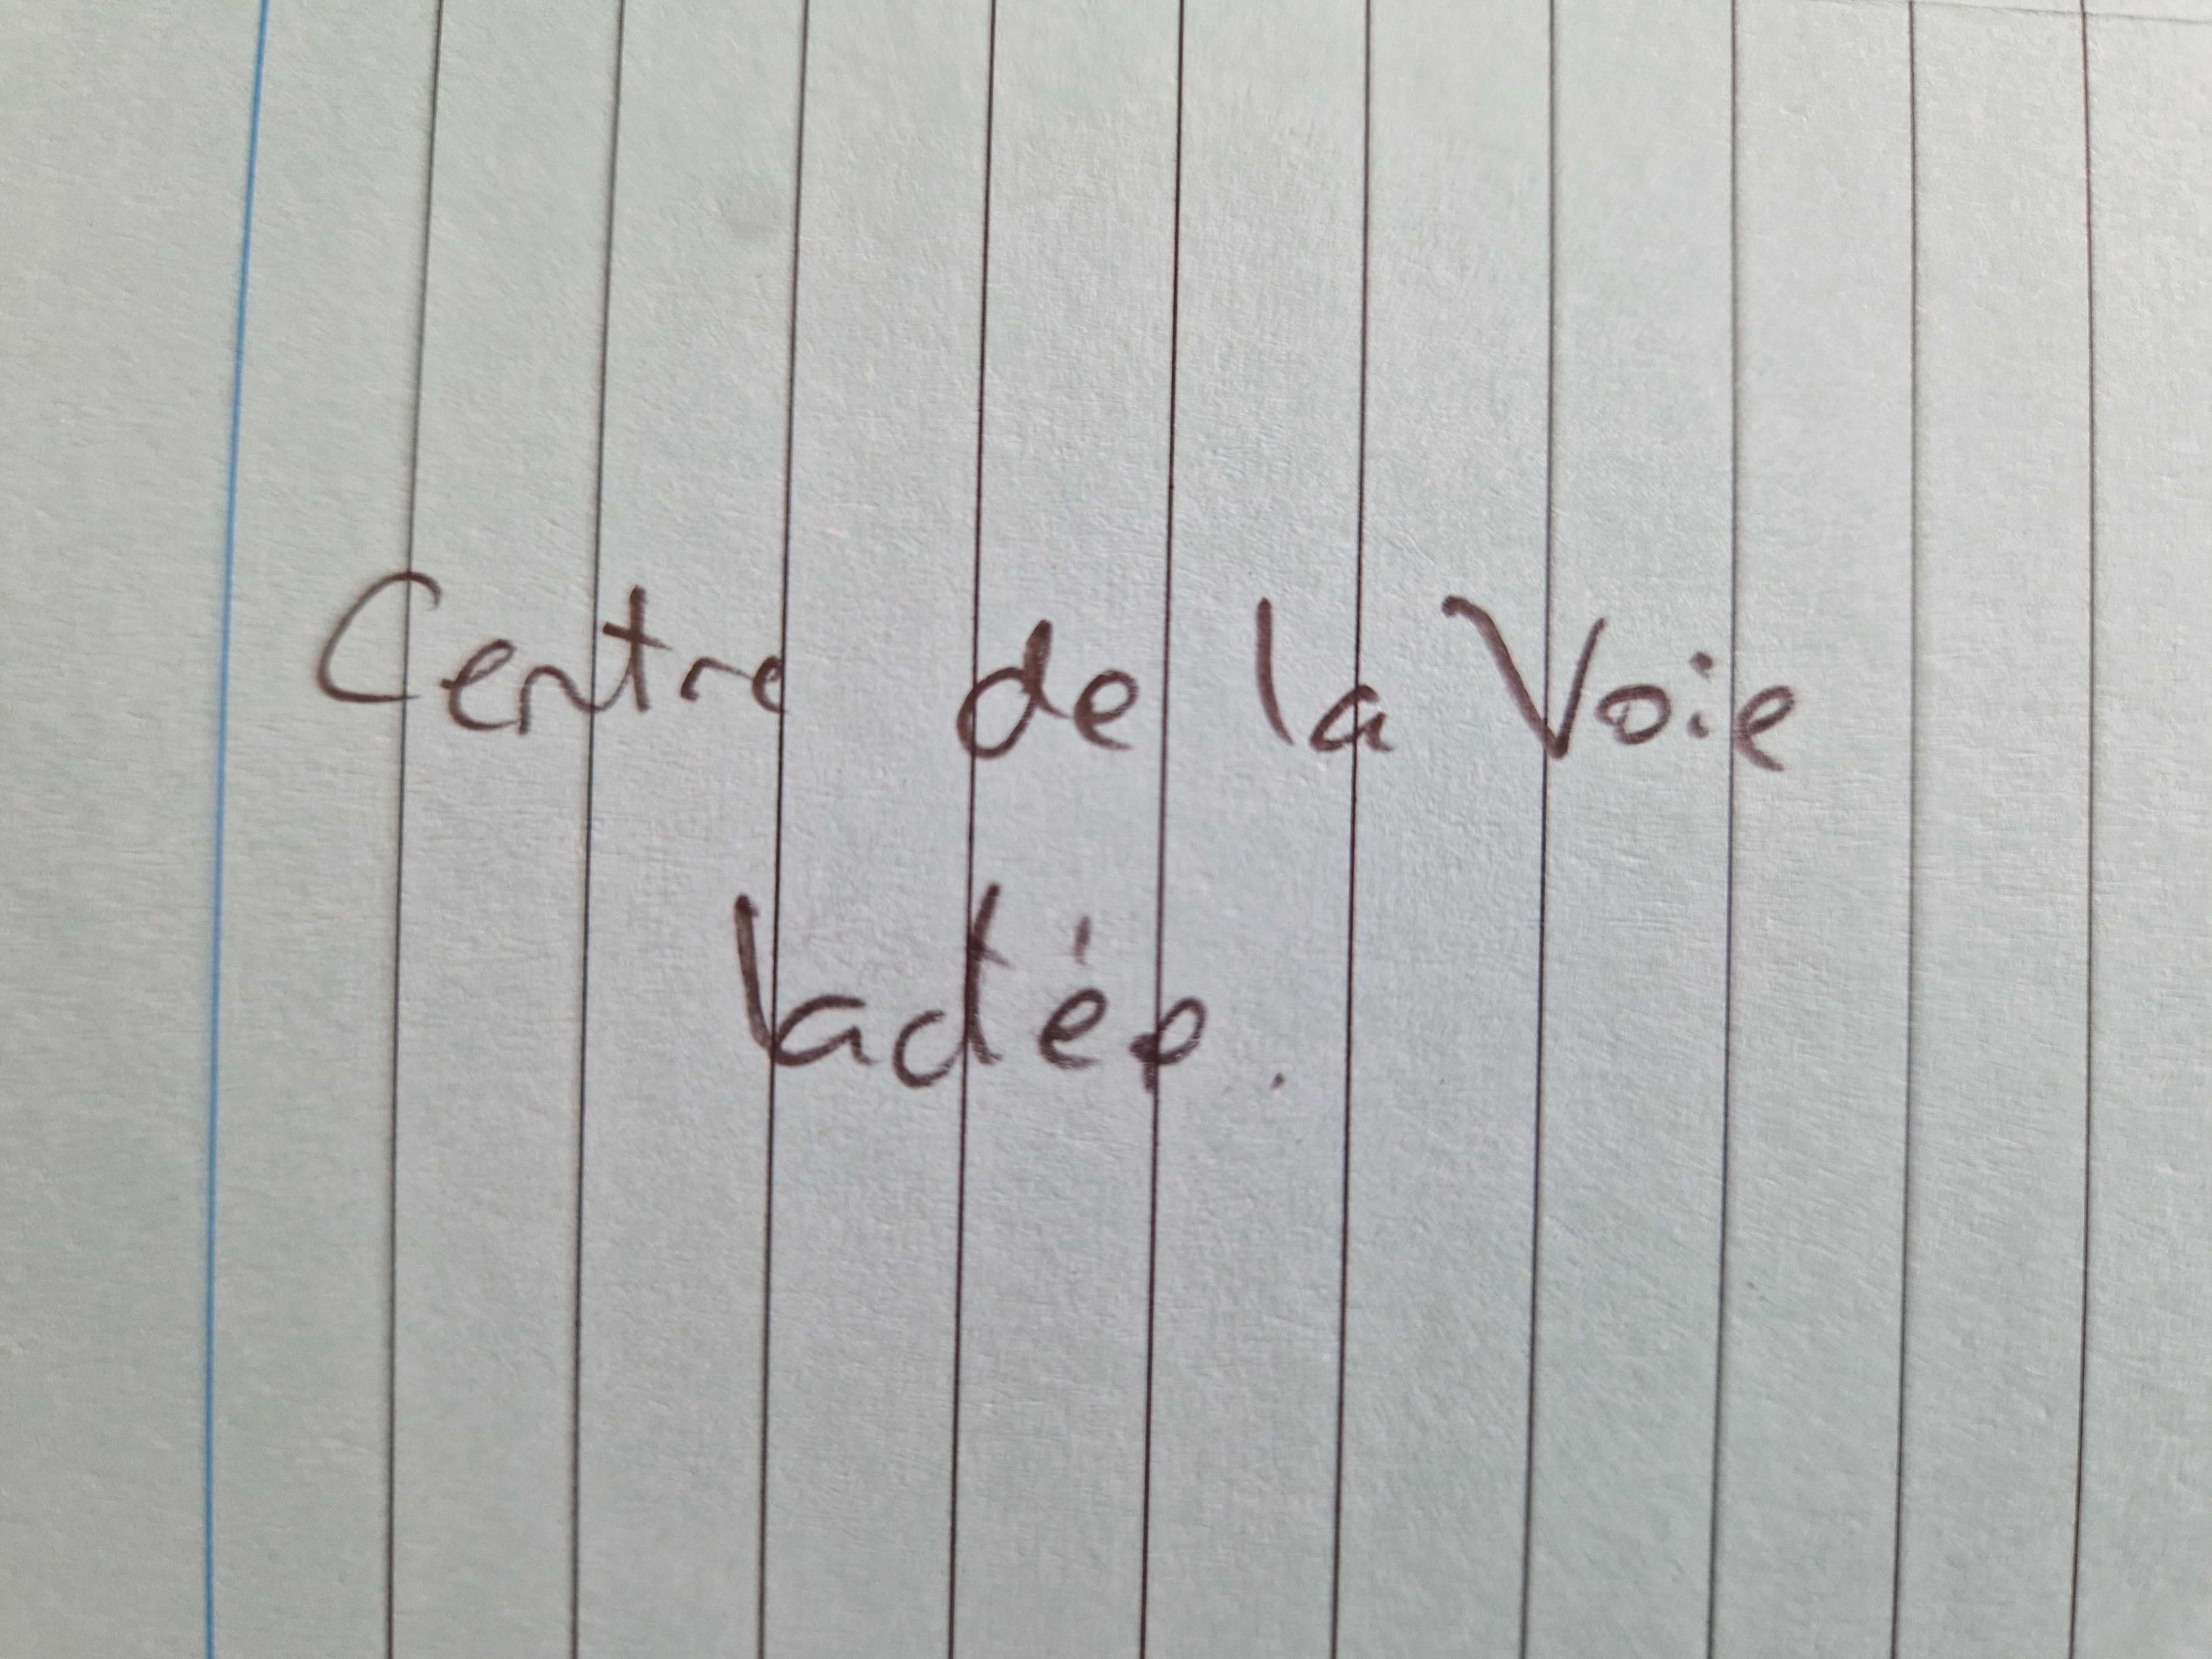 Centre de la Voie
lactée.